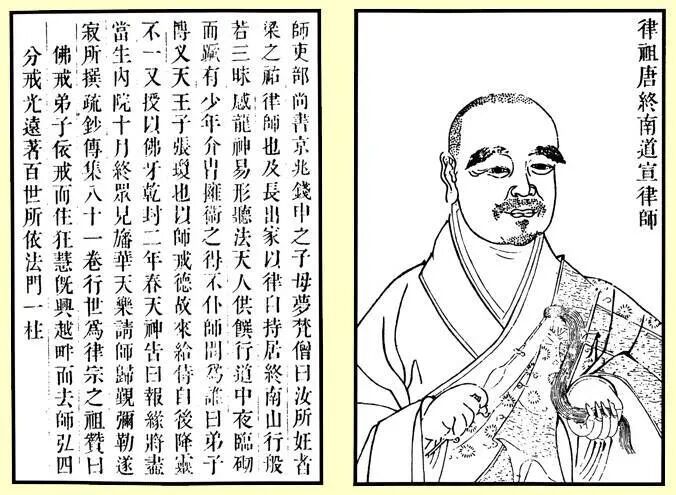 律祖唐終南道宣律師
師吏部尚書京兆錢申之子母夢梵僧曰汝所妊者
梁之祐律師也及長出家以律自持居終南山行般
若三昧感龍神易形聽法天人供饌行道中夜臨砌
而蹶有少年介胄擁衛之得不仆師問爲誰曰弟子
博叉天王子張瓊也以師戒德故來給侍自後降靈
不一又授以佛牙乾封二年春天神告曰報緣將盡
當生內院十月終眾見旛華天樂請師歸覲彌勒遂
寂所撰疏鈔傳集八十一卷行世爲律宗之祖贊曰
佛戒弟子依戒而住狂慧既興越畔而去師弘四
分戒光遠著百世所依法門一柱